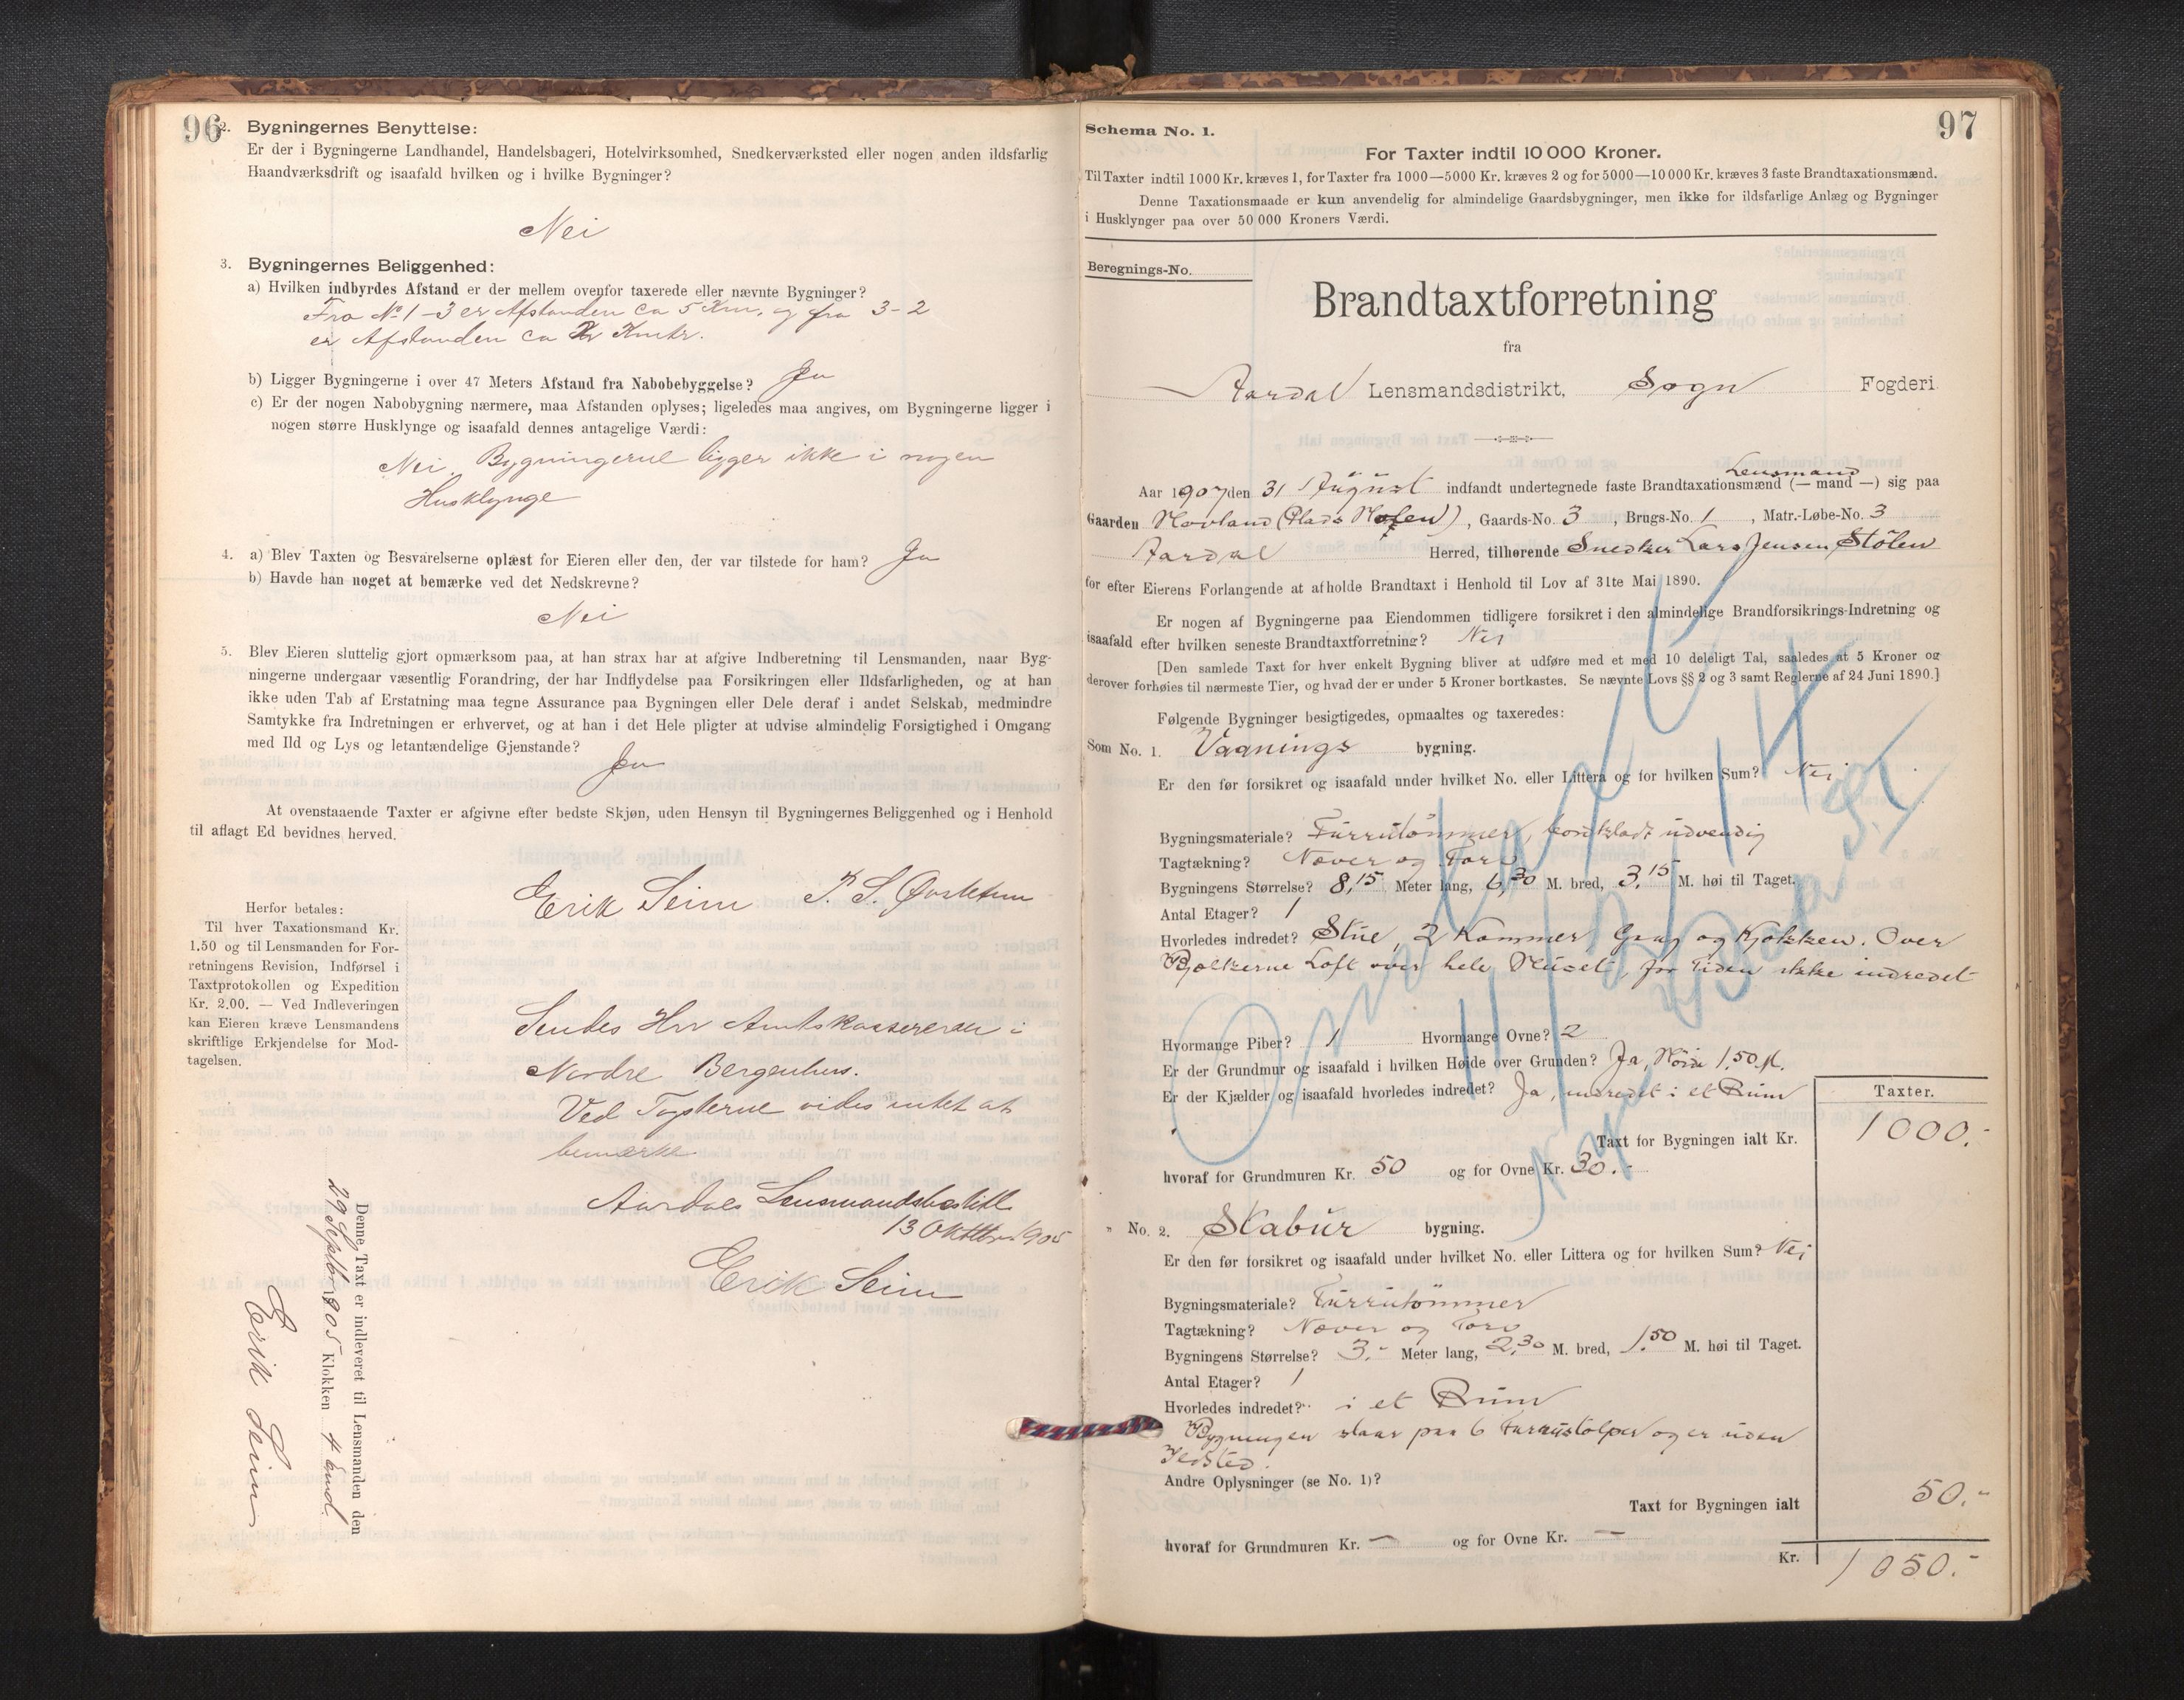 96
2. Bygningernes Benyttelse:
Er der i Bygningerne Landhandel, Handelsbageri, Hotelvirksomhed, Snedkerværksted eller nogen anden ildsfarlig
Haandværksdrift og isaafald hvilken og i hvilke Bygninger?
Nei
3. Bygningernes Beliggenhed:
a) Hvilken indbyrdes Afstand er der mellem ovenfor taxerede eller nævnte Bygninger?
Fra No 1-3 er Afstanden ca 5 Km, og fra 3-2
er Afstanden ca Kmtr.
b) Ligger Bygningerne i over 47 Meters Afstand fra Nabobebyggelse? Ja
c) Er der nogen Nabobygning nærmere, maa Afstanden oplyses; ligeledes maa angives, om Bygningerne ligger i
nogen større Husklynge og isaafald dennes antagelige Værdi:
Nei. Bygningerne ligger ikke i nogen
Husklynge
4. a) Blev Taxten og Besvarelserne oplæst for Eieren eller den, der var tilstede for ham? Ja
b) Havde han noget at bemærke ved det Nedskrevne?
Nei
5. Blev Eieren sluttelig gjort opmærksom paa, at han strax har at afgive Indberetning til Lensmanden, naar Byg-
ningerne undergaar væsentlig Forandring, der har Indflydelse paa Forsikringen eller Ildsfarligheden, og at han
ikke uden Tab af Erstatning maa tegne Assurance paa Bygningen eller Dele deraf i andet Selskab, medmindre
Samtykke fra Indretningen er erhvervet, og at han i det Hele pligter at udvise almindelig Forsigtighed i Omgang
med Ild og Lys og letantændelige Gjenstande?
Ja
At ovenstaaende Taxter er afgivne efter bedste Skjøn, uden Hensyn til Bygningernes Beliggenhed og i Henhold
til aflagt Ed bevidnes herved.
Erik Seim P. S.
Herfor betales:
Til hver Taxationsmand Kr.
1.50 og til Lensmanden for For-
retningens Revision, Indførsel i
Taxtprotokollen og Expedition
Kr. 2.00. — Ved Indleveringen
kan Eieren kræve Lensmandens
skriftlige Erkjendelse for Mod-
tagelsen.
Sendes Hrr Amtskassereren i
Nordre Bergenhus.
Ved Taxterne vides intet at
bemærke
Aardals Lensmandsbestill.
13 Oktbr 1905
Erik Seim
Denne Taxt er indleveret til Lensmanden den
29 Septbr 1905 Klokken 4
Erik Seim
97
Schema No. 1.
For Taxter indtil 10 000 Kroner.
Til Taxter indtil 1000 Kr. kræves 1, for Taxter fra 1000—5000 Kr. kræves 2 og for 5000—10 000 Kr. kræves 3 faste Brandtaxationsmænd.
Denne Taxationsmaade er kun anvendelig for almindelige Gaardsbygninger, men ikke for ildsfarlige Anlæg og Bygninger
i Husklynger paa over 50 000 Kroners Værdi.
Beregnings-No.
Brandtaxtforretning
fra
Aardal Lensmandsdistrikt, Sogn Fogderi.
Lensmand
Aar 1907 den 31 August indfandt undertegnede faste Brandtaxationsmænd (— mand —) sig paa
Gaarden Hovland (Plads), Gaards-No. 3, Brugs-No. 1, Matr.-Løbe-No. 3
Aardal Herred, tilhørende Snedker Lars Jensen Stölen
for efter Eierens Forlangende at afholde Brandtaxt i Henhold til Lov af 31te Mai 1890.
Er nogen af Bygningerne paa Eiendommen tidligere forsikret i den almindelige Brandforsikrings-Indretning og
isaafald efter hvilken seneste Brandtaxtforretning? Nei
[Den samlede Taxt for hver enkelt Bygning bliver at udføre med et med 10 deleligt Tal, saaledes at 5 Kroner og
derover forhøies til nærmeste Tier, og hvad der er under 5 Kroner bortkastes. Se nævnte Lovs §§ 2 og 3 samt Reglerne af 24 Juni 1890.]
Følgende Bygninger besigtigedes, opmaaltes og taxeredes:
Som No. 1. Vaanings bygning.
Er den før forsikret og isaafald under hvilket No. eller Littera og for hvilken Sum? Nei
Bygningsmateriale? Furrutömmer, bordklædt udvendig
Tagtækning? Næver og Torv
Bygningens Størrelse? 8,15 Meter lang, 6,30 M. bred, 3,15 M. høi til Taget.
Antal Etager? 1
Hvorledes indredet? Stue, 2 Kammer, Gang og Kjøkken. Over
Bjælkerne Loft over hele Huset, for Tiden ikke indredet
Hvormange Piber? 1 Hvormange Ovne? 2
Er der Grundmur og isaafald i hvilken Høide over Grunden? Ja, Höide 1,50 M.
Er der Kjælder og isaafald hvorledes indredet? Ja, indredet i et Rum
Taxter.
Taxt for Bygningen ialt Kr. 1000.-
hvoraf for Grundmuren Kr. 50 og for Ovne Kr. 30.-
" No. 2. Stabur bygning.
Er den før forsikret og isaafald under hvilket No. eller Littera og for hvilken Sum? Nei
Bygningsmateriale? Furrutömmer
Tagtækning? Næver og Torv
Bygningens Størrelse? 3.- Meter lang, 2,30 M. bred, 1,50 M. høi til Taget.
Antal Etager? 1
Hvorledes indredet? i et Rum
Bygningen staar paa 6 Furrustolper og er uden
Ildsted.
Andre Oplysninger (se No. 1)?
Taxt for Bygningen ialt 50.-
hvoraf for Grundmuren Kr. — og for Ovne Kr. —
Kr. 1050.-
Omtaxt